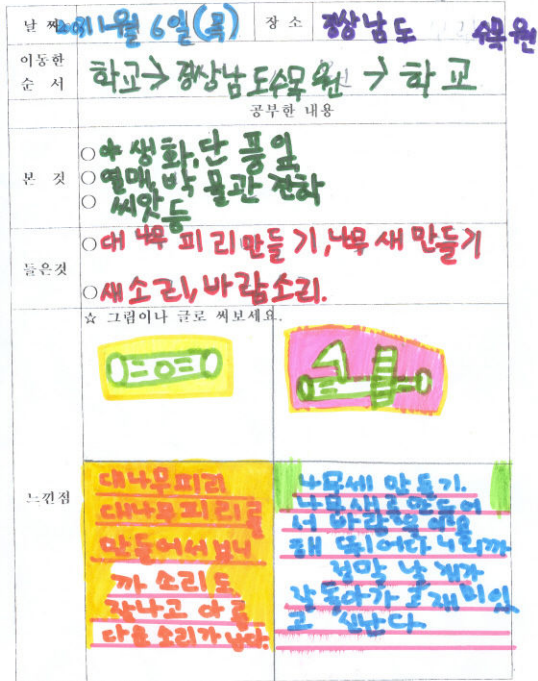 날 짜 11월 6일(목) 장 소 경상남도 수목원
이동한
순 서 학교→경상남도수목원→학교
공부한 내용
본 것
○야생화,단풍잎
○열매,박물관 전화
○ 씨앗등
들은것
○대나무피리만들기,나무새만들기
○새소리,바람소리.
☆ 그림이나 글로 써보세요.
느낀점
대나무피리
대나무피리를
만들어서보니
까 소리도
잘나고 아름
다운 소리가 났다.
나무세 만들기.
나무새를만들어
서 바람
해 뛰어다니니까
정말 날개가
잘돌아가고재미있
고 신난다.